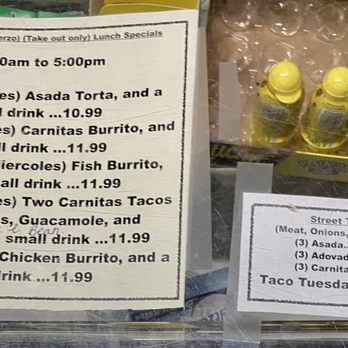 erzo) (Take out only) Lunch Specials
0am to 5:00pm
es) Asada Torta, and a
l drink ...10.99
es) Carnitas Burrito, and
all drink ...11.99
iercoles) Fish Burrito,
all drink ...11.99
es) Two Carnitas Tacos
s, Guacamole, and
Bean
small drink ...11.99
Chicken Burrito, and a
drink ...11.99
Street T
(Meat, Onions,
(3) Asada..
(3) Adovad
(3) Carnita
Taco Tuesda